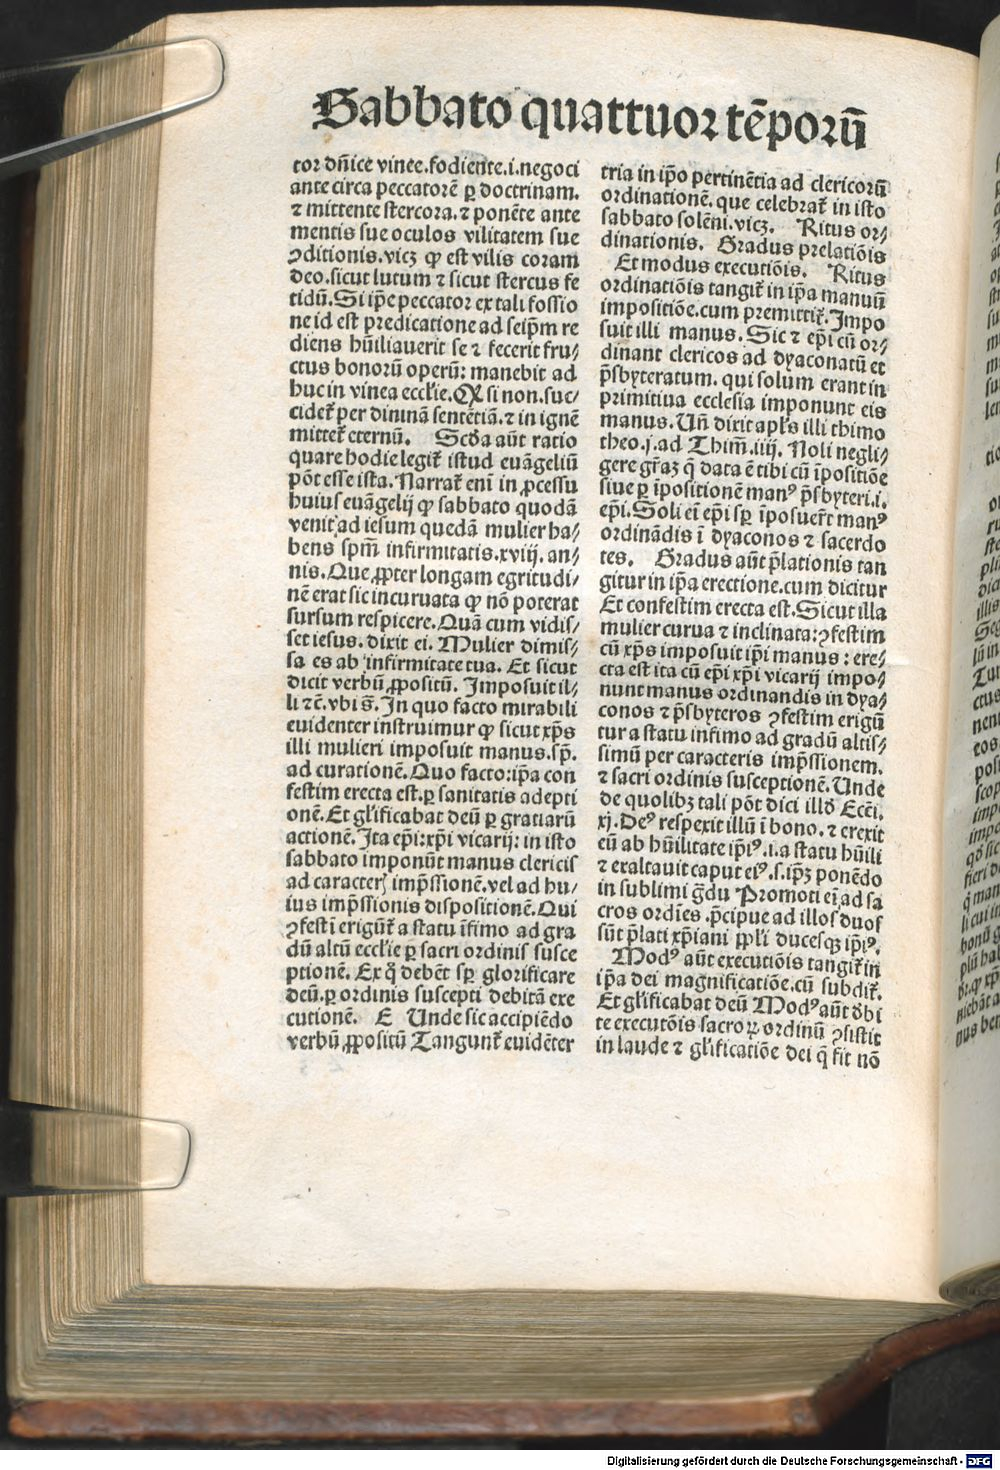 Sabbato quattuor tēporū
tor dn̄ice vinee.fodiente.i.negoci
ante circa peccatorē ꝑ doctrinam.
⁊ mittente stercora.⁊ ponēte ante
mentis sue oculos vilitatem sue
ꝯditionis.vicꝫ ꝙ est vilis coram
deo.sicut lutum ⁊ sicut stercus fe
tidū.Si ip̄e peccator ex tali fossio
ne id est predicatione ad seip̄m re
diens hūiliauerit se ⁊ fecerit fru/
ctus bonorū operū: manebit ad
huc in vinea eccl̄ie.Qꝙ si non.suc/
cidet᷑ per diuinā sentētiā.⁊ in ignē
mittet᷑ eternū. Scd̄a aūt ratio
quare hodie legit᷑ istud euāgeliū
pōt esse ista.Narrat᷑ eni in ꝓcessu
huius euāgelij ꝙ sabbato quodā
venit ad iesum quedā mulier ha/
bens sp̄m infirmitatis.xviij. an/
nis.Que ꝓpter longam egritudi/
nē erat sic incuruata ꝙ nō poterat
sursum respicere.Quā cum vidis/
set iesus. dixit ei. Mulier dimis/
sa es ab infirmitate tua. Et sicut
dicit verbū ꝓpositū. Imposuit il/
li ⁊c̄.vbi s̄.In quo facto mirabili
euidenter instruimur ꝙ sicut xp̄s
illi mulieri imposuit manus.sp̄.
ad curationē.Quo facto:ip̄a con
festim erecta est.ꝑ sanitatis adepti
onē.Et gl̄ificabat deū ꝑ gratiarū
actionē.Ita ep̄i:xp̄i vicarij: in isto
sabbato imponūt manus clericis
ad caracterꝭ imp̄ssionē.vel ad hu/
ius imp̄ssionis dispositionē.Qui
ꝯfesti erigūt᷑ a statu īfimo ad gra
dū altū eccl̄ie ꝑ sacri ordinis susce
ptionē. Ex q̊ debēt sp̄ glorificare
deū.ꝑ ordinis suscepti debitā exe
cutionē. E Unde sic accipiēdo
verbū ꝓpositū Tangunt᷑ euidēter
tria in ip̄o pertinētia ad clericorū
ordinationē. que celebrat᷑ in isto
sabbato solēni.vicꝫ. Ritus or/
dinationis. Gradus prelatiōis
Et modus executiōis. Ritus
ordinatiōis tangit᷑ in ip̄a manuū
impositiōe.cum premittit᷑.Impo
suit illi manus. Sic ⁊ ep̄i cū or/
dinant clericos ad dyaconatū et
p̄sbyteratum. qui solum erant in
primitiua ecclesia imponunt eis
manus.Un̄ dixit apl̄s illi thimo
theo.j.ad Thim̄.iiij. Noli negli/
gere gr̄aꝫ q̄ data ē tibi cū īpositiōe
siue ꝑ ipositionē manꝰ p̄sbyteri.i.
ep̄i.Soli ei ep̄i sp̄ īposuer̄t manꝰ
ordinādis ī dyaconos ⁊ sacerdo
tes. Gradus aūt p̄lationis tan
gitur in ip̄a erectione.cum dicitur
Et confestim erecta est.Sicut illa
mulier curua ⁊ inclinata:ꝯfestim
cū xp̄s imposuit ip̄i manus : ere/
cta est ita cū ep̄i xp̄i vicarij impo/
nunt manus ordinandis in dya/
conos ⁊ p̄sbyteros ꝯfestim erigū
tur a statu infimo ad gradū altis/
simū per caracteris imp̄ssionem.
⁊ sacri ordinis susceptionē.Unde
de quolibꝫ tali pōt dici illd̄ Ecc̄i.
xj.Deꝰ respexit illū ī bono.⁊ erexit
eū ab hūilitate ip̄iꝰ.i.a statu hūili
⁊ exaltauit caput eiꝰ.s.ip̄ꝫ ponēdo
in sublimi gͣdu Promoti ei ad sa
cros ordīes .p̄cipue ad illos duos
sūt p̄lati xp̄iani ꝓpl̄i ducesqꝫ ip̄iꝰ.
Modꝰ aūt executiōis tangit᷑ in
ip̄a dei magnificatiōe.cū subdit᷑.
Et gl̄ificabat deū Modꝰ aūt d̄bi
te executōis sacroꝝ ordinū ꝯsistit
in laude ⁊ gl̄ificatiōe dei q̄ fit nō
Digitalisierung gefördert durch die Deutsche Forschungsgemeinschaft - DFG